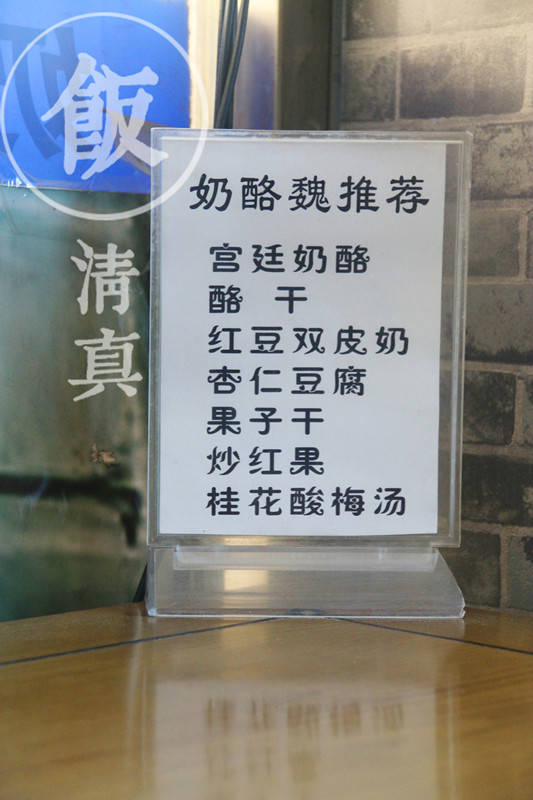 飯
清真
奶酪魏推荐
宫廷奶酪
酪 干
红豆双皮奶
杏仁豆腐
果子干
炒红果
桂花酸梅汤